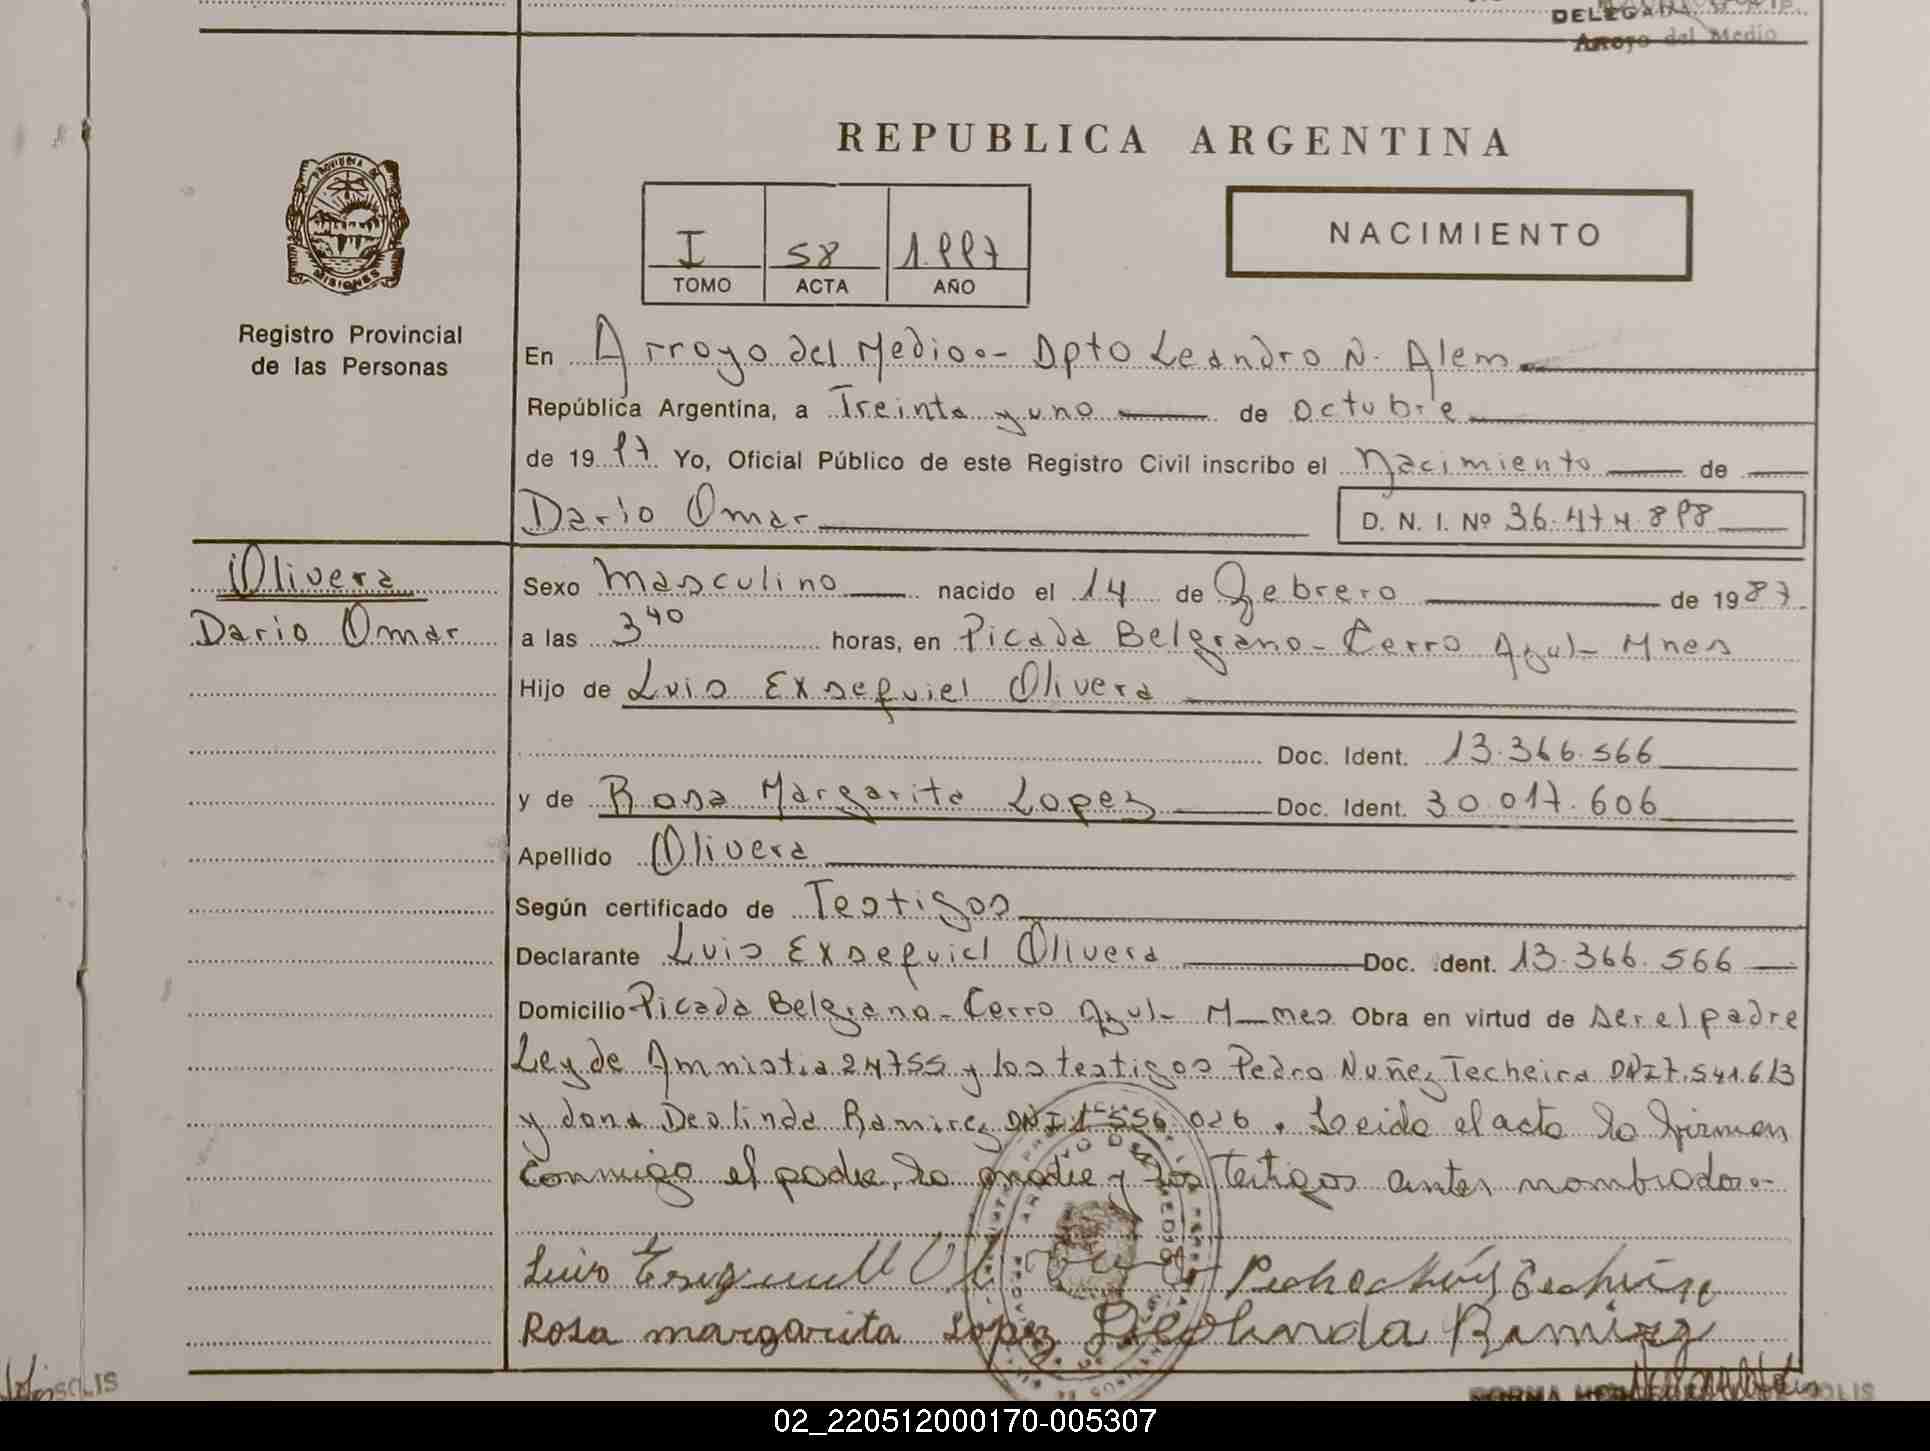 DELEGADA
Arroyo del Medio
REPUBLICA ARGENTINA
PROVINCIA DE
MISIONES
I
58
1.997
TOMO
ACTA
AÑO
NACIMIENTO
Registro Provincial
de las Personas
En Arroyo del Medio.- Dpto Leandro N. Alem
República Argentina, a Treinta y uno de octubre
de 1997 Yo, Oficial Público de este Registro Civil inscribo el Nacimiento de
Dario Omar
D. N. I. Nº 36.474.898
Olivera
Dario Omar
Sexo Masculino nacido el 14 de Febrero de 1987
a las 3 40 horas, en Picada Belgrano - Cerro Azul - Mnes
Hijo de Luis Exsequiel Olivera
Doc. Ident. 13.366.566
y de Rosa Margarita Lopez Doc. Ident. 30.017.606
Apellido Olivera
Según certificado de Testigos
Declarante Luis Exsequiel Olivera Doc. Ident. 13.366.566
Domicilio Picada Belgrano - Cerro Azul - M_nes Obra en virtud de ser el padre
Ley de Amnistia 24755 y los testigos Pedro Nuñez Techeira DNI 7.541.613
y dona Deolinda Ramirez DNI 1 556 026 . Leida el acta la firman
conmigo el padre, la madre y los Testigos antes nombrados.-
Luis Olivera
Rosa margarita Lopez Deolinda Ramirez
SOLIS
NORMA SOLIS
02_220512000170-005307